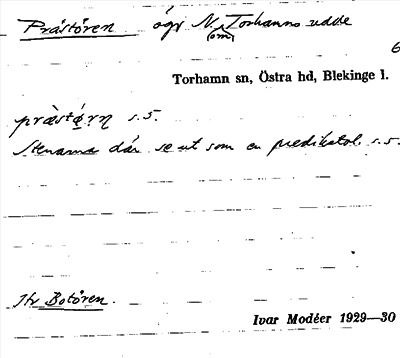 Prästören ögr N. om Torhamns udde
6
Torhamn sn, Östra hd, Blekinge l.
s.s.
Stenarna där se ut som en predikstol. s.s.
Jfr Botören.
Ivar Modéer 1929—30